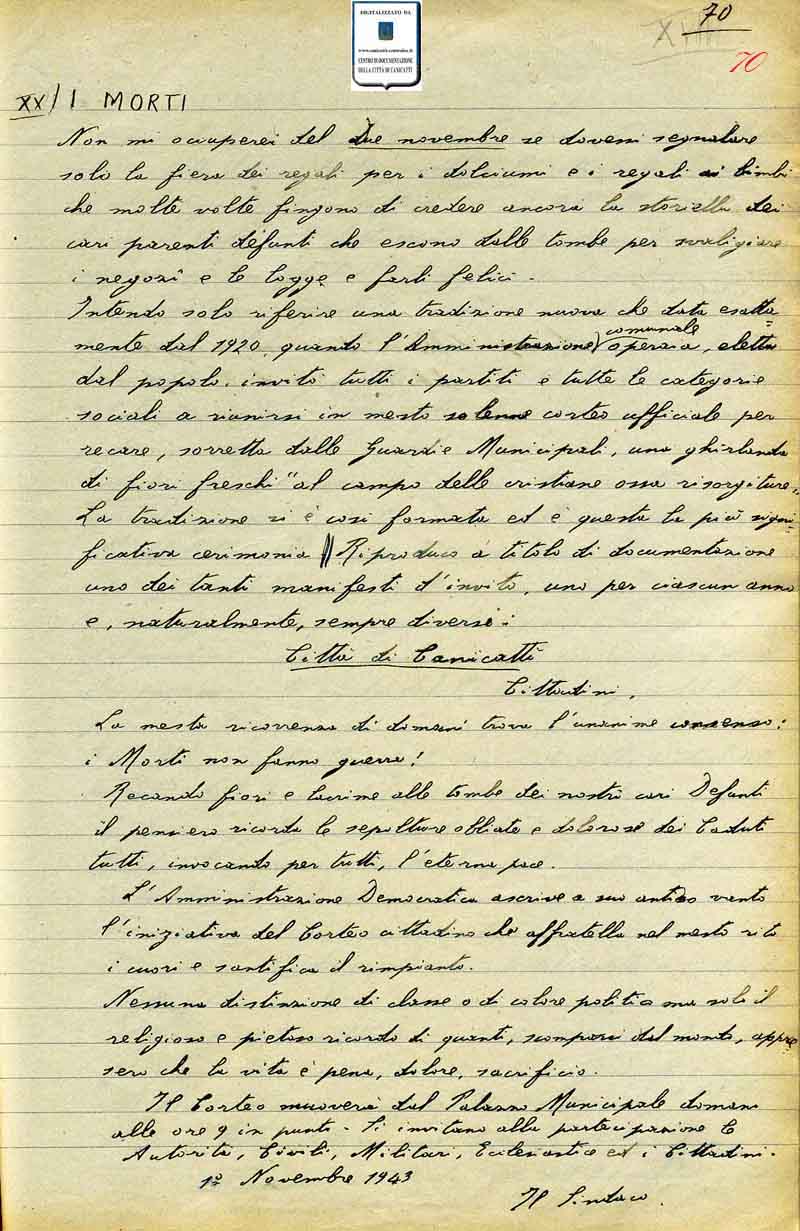 DIGITALIZZATO DA
www.canicatti-centrodoc.it
CENTRO DI DOCUMENTAZIONE
DELLA CITTÀ DI CANICATTÌ
70
XVIII
70
XX/ I MORTI
Non mi occuperei del Due novembre se dovessi segnalare
solo la fiera dei regali per i dolciumi e i regali ai bimbi
che molte volte fingono di credere ancora la storiella dei
cari parenti defunti che escono dalle tombe per svaligiare
i negozî e le logge e farli felici.
Intendo solo riferire una tradizione nuova che data esatta=
mente dal 1920, quando l'Amministrazione comunale operaia, eletta
dal popolo, invitò tutti i partiti e tutte le categorie
sociali a riunirsi in mesto solenne corteo ufficiale per
recare, sorretta dalle Guardie Municipali, una ghirlanda
di fiori freschi "al campo delle cristiane ossa risorgiture".
La tradizione si è così formata ed è questa la più signi=
ficativa cerimonia // Riproduco a titolo di documentazione
uno dei tanti manifesti d'invito, uno per ciascun anno
e, naturalmente, sempre diversi:
Città di Canicattì
Cittadini,
La mesta ricorrenza di domani trova l'unanime consenso:
i Morti non fanno guerra!
Recando fiori e lacrime alle tombe dei nostri cari Defunti
il pensiero ricorda le sepolture obliate e dolorose dei Caduti
tutti, invocando per tutti, l'eterna pace.
L'Amministrazione Democratica ascrive a suo antico vanto
l'iniziativa del Corteo cittadino che affratella nel mesto rito
i cuori e santifica il rimpianto.
Nessuna distinzione di classe o di colore politico ma solo il
religioso e pietoso ricordo di quanti, scomparsi dal mondo, appre
sero che la vita è pena, dolore, sacrificio.
Il Corteo muoverà dal Palazzo Municipale domani
alle ore 9 in punto - Si invitano alla partecipazione le
Autorità, Civili, Militari, Ecclesiastiche ed i Cittadini.
1º Novembre 1943
Il Sindaco.